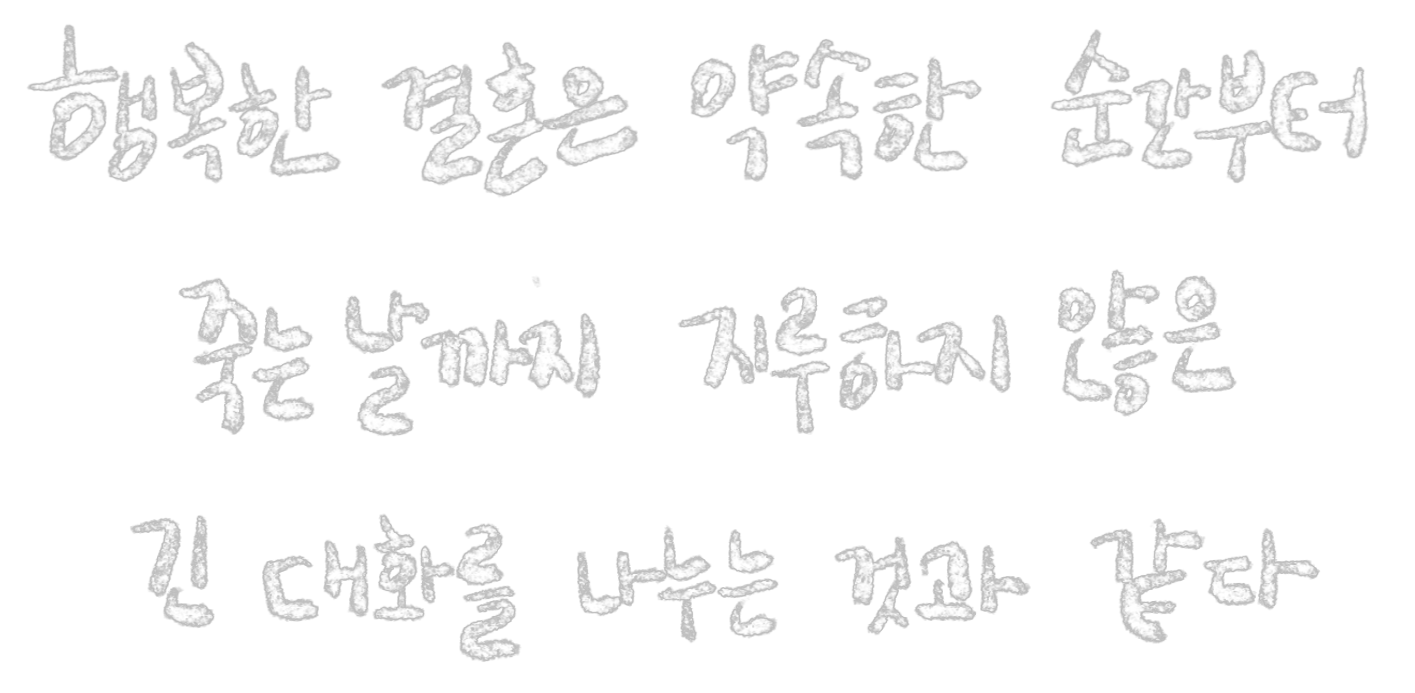 행복한 결혼은 약속한 순간부터
죽는 날까지 지루하지 않은
긴 대화를 나누는 것과 같다